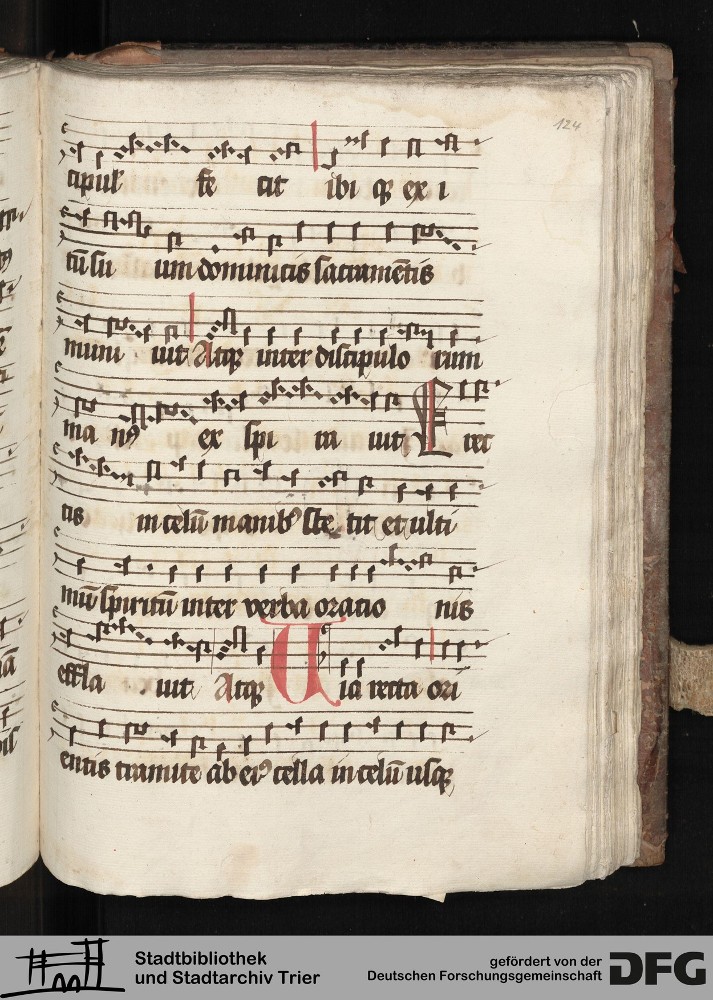 124
cipul' se cit ibi q̃ ex i
tũ su um dominicis sacramẽtis
muni uit Atq̃ inter discipulo rum
ma nꝰ ex spi ra uit E rec
tis in celũ manibꝰ ste tit et ulti
mũ spiritũ inter verba oratio nis
effla uit Atq̃ Uia recta ori
entis tramite ab eiꝰ cella in celũ usq̃
Stadtbibliothek
und Stadtarchiv Trier
gefördert von der
Deutschen Forschungsgemeinschaft
DFG